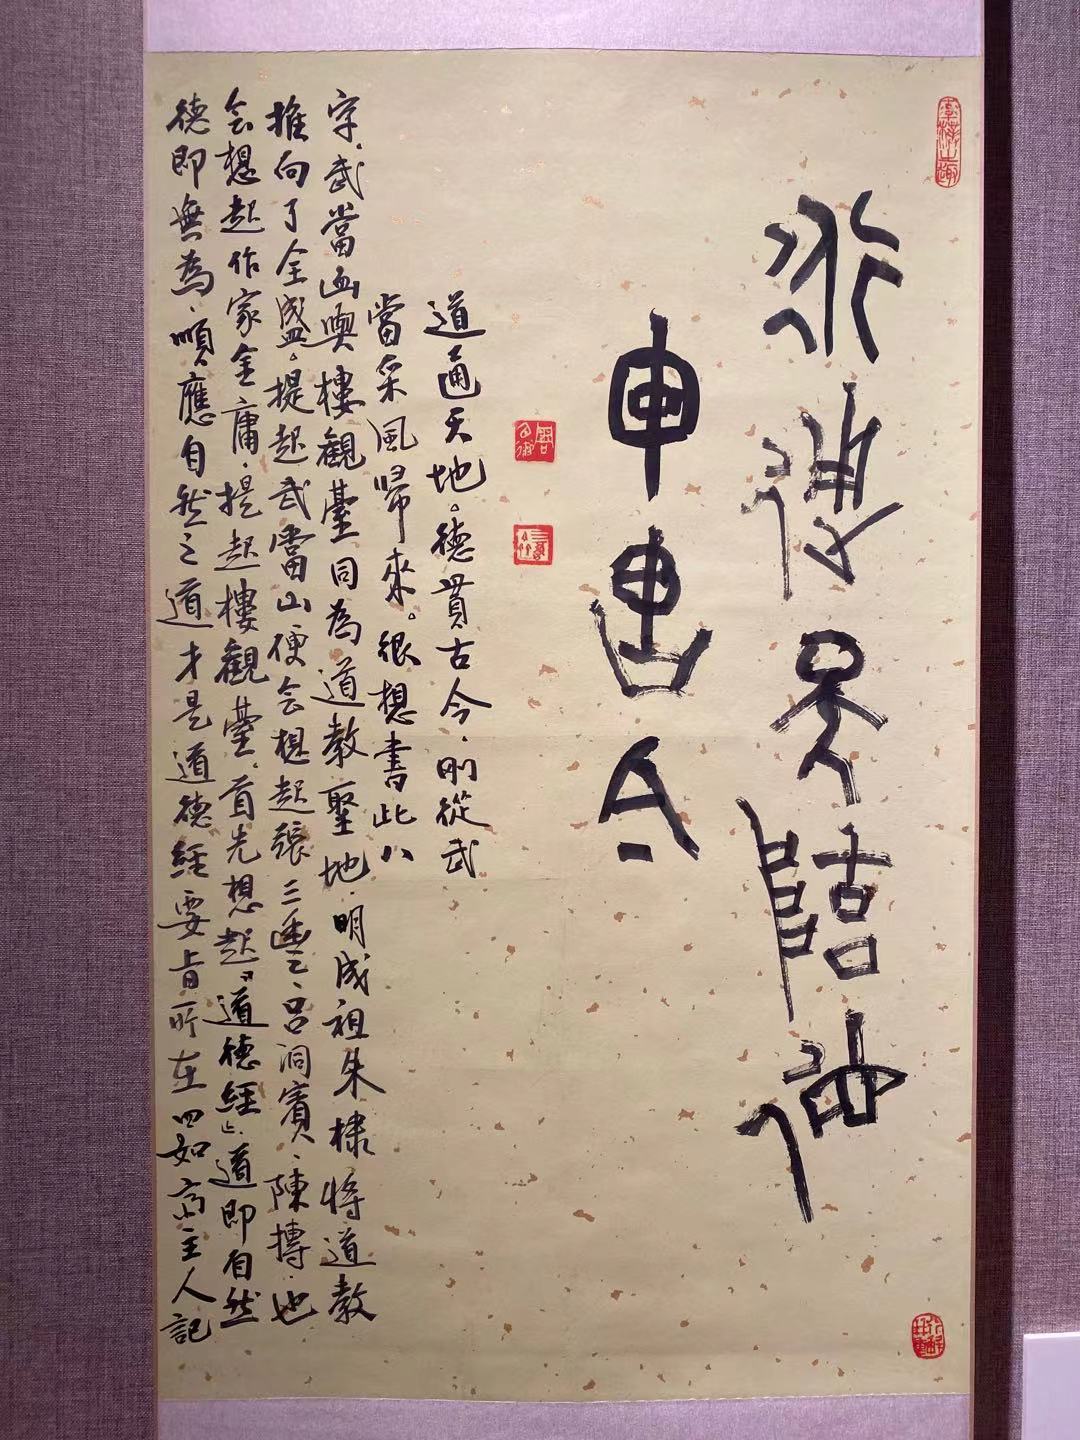 道通天地德
貫古今
道通天地。德貫古今,刚從武
當采風归來。很想書此八
字,武當山與樓觀臺同為道教聖地,明成祖朱棣将道教
推向了全盛。提起武當山便会想起張三豐、吕洞賓、陳摶,也
会想起作家金庸,提起樓觀臺,首先想起『道德經』道即自然
德即無為,順應自然之道才是道德經要旨所在 四如斋主人記